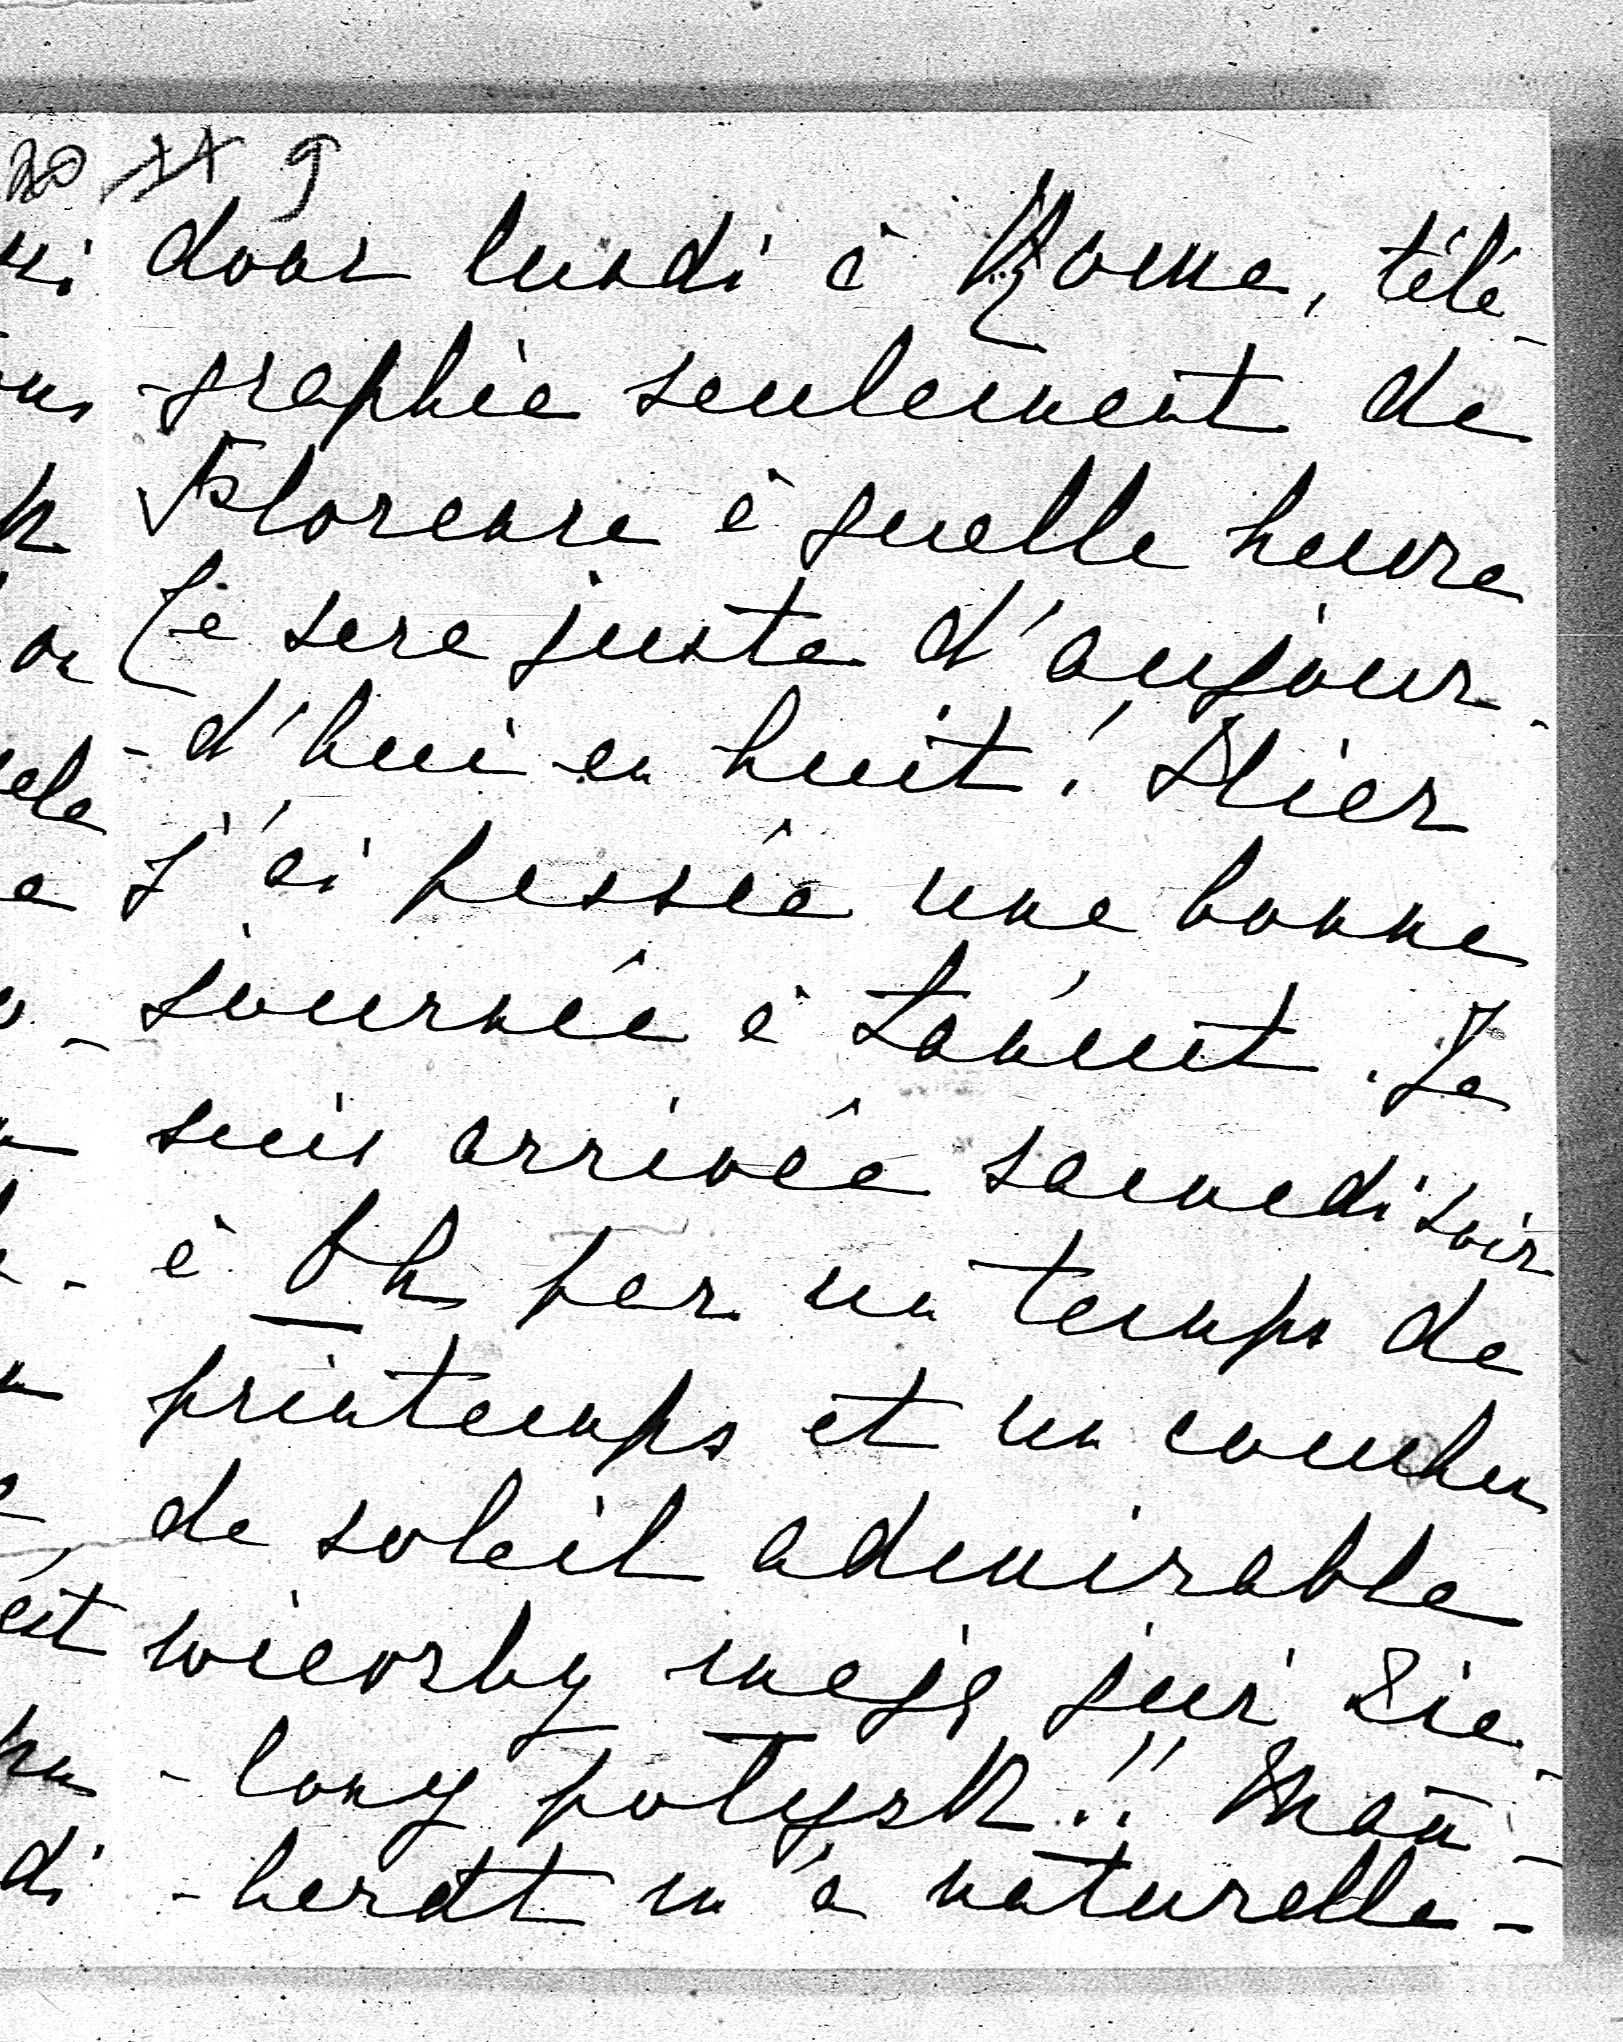 20 11 9
donc lundi à Rome, télé-
-graphie seulement de
Florence à quelle heure
Ce sera juste d'aujour-
-d'hui en huit! Hier
j'ai passée une bonne
journée à Łańcut. Je
suis arrivée samedi soir
à 5h par un temps de
printemps et un coucher
de soleil admirable
wierzby mają już zie-
-lony połysk!! Mau-
di -herdt m'a naturelle-